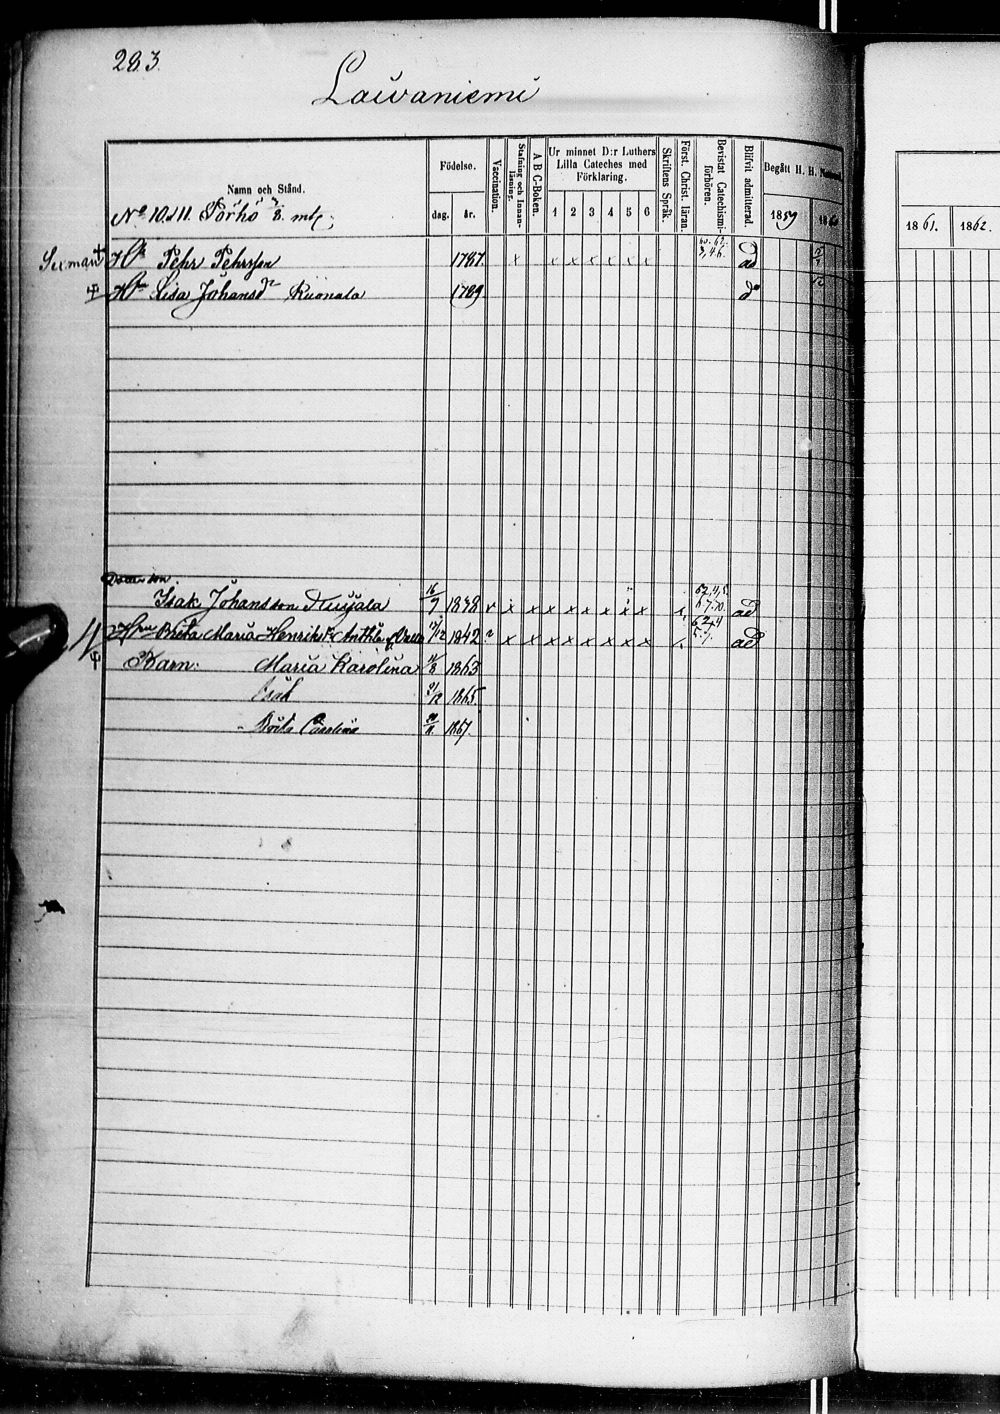 283.
Laivaniemi
Namn och Stånd.
Födelse.
dag. år.
Vaccination.
Stafning och Innanläsning.
A B C-Boken.
Ur minnet D:r Luthers Lilla Cateches med Förklaring.
1 2 3 4 5 6
Skriftens Språk.
Först. Christ. läran.
Bevistat Catechismiförhören.
Blifvit admitterad.
Begått H. H.
1859
1861. 1862.
No 10 d 11. Pörhö 3/8. mtl;
Pehr Pehrsson 1787. x x x x x x x ad
Lisa Johansdr Ruonala 1789 do
Isak Johansson 16/7 1838 x x x x x x x x x x ad
Brita Maria Henriksdr Anttila 1842 ? x x x x x x x x ad
Barn: Maria Karolina 11/8 1863
Isak 9/12 1865.
Brita Carolina 1867.